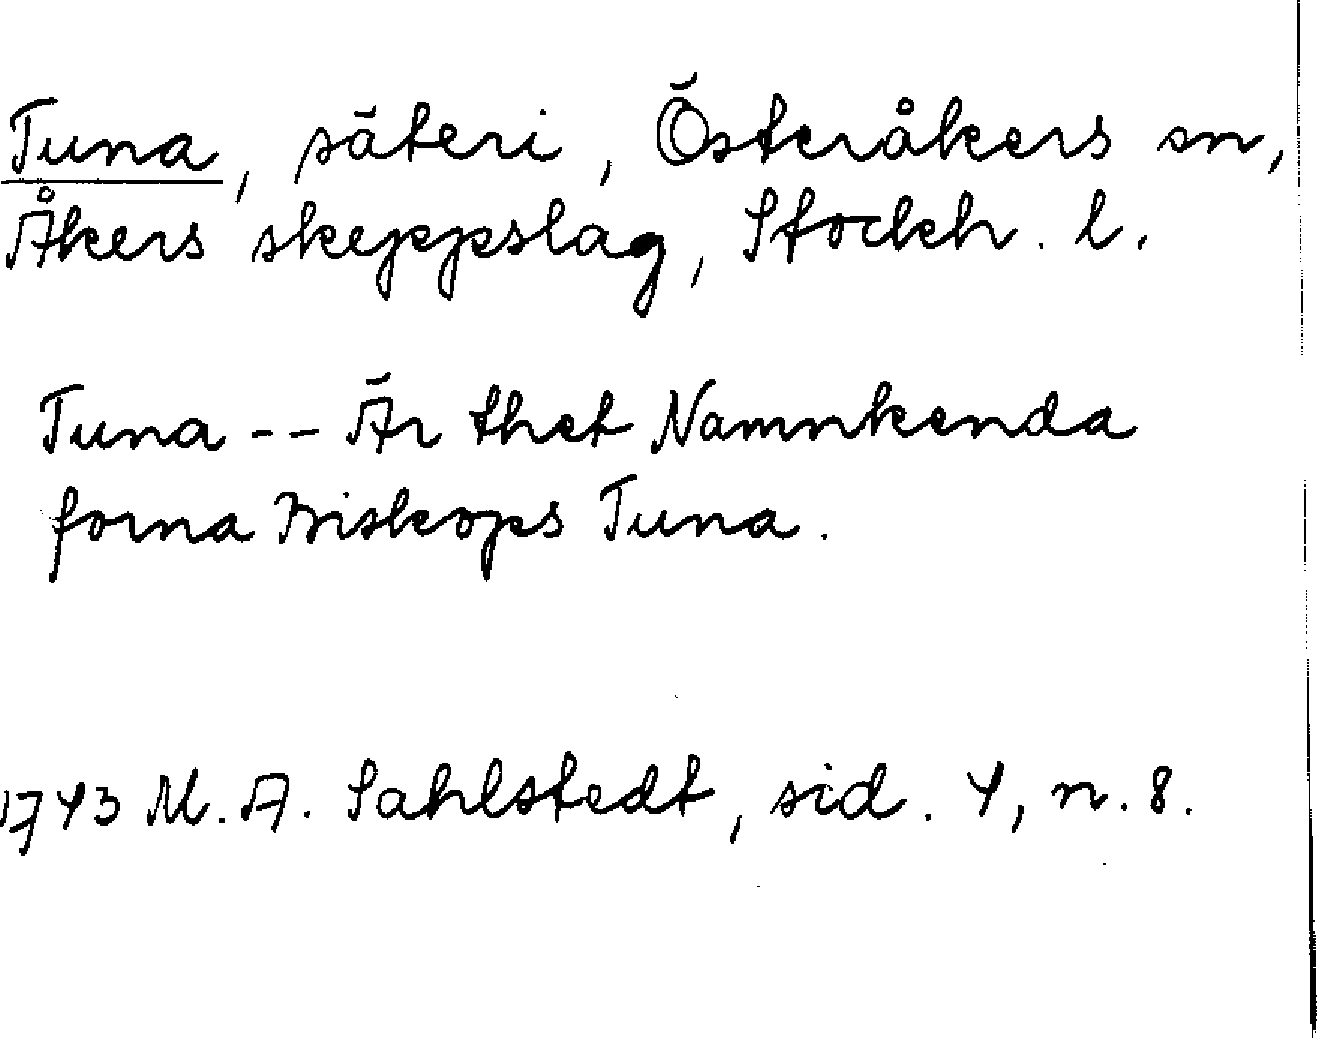 Tuna, säteri, Österåkers sn,
Åkers skeppslag, Stockh. l.
Tuna -- Är thet Namnkenda
forna Biskops Tuna.
1743 M. A. Sahlstedt, sid. 4, n. 8.